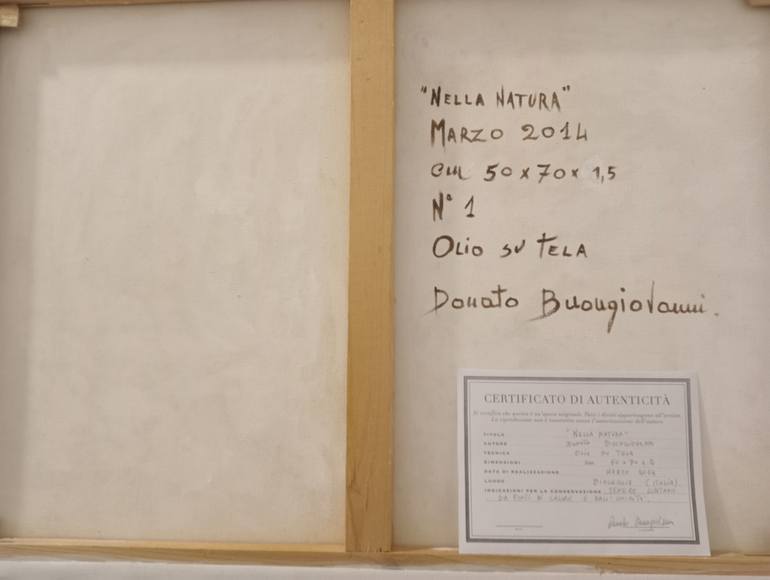 "NELLA NATURA"
MARZO 2014
cm 50 x 70 x 1,5
N° 1
OLIO SU TELA
Donato Buongiovanni.
CERTIFICATO DI AUTENTICITÀ
Si certifica che questa è un'opera originale. Tutti i diritti appartengono all'artista.
La riproduzione non è consentita senza l'autorizzazione dell'autore
TITOLO "NELLA NATURA"
AUTORE DONATO BUONGIOVANNI
TECNICA OLIO SU TELA
DIMENSIONI cm 50 x 70 x
DATA DI REALIZZAZIONE MARZO 2014
LUOGO (ITALIA)
INDICAZIONI PER LA CONSERVAZIONE TENERE LONTANO
DA FONTI DI CALORE E DALL'UMIDITÀ.
Donato Buongiovanni